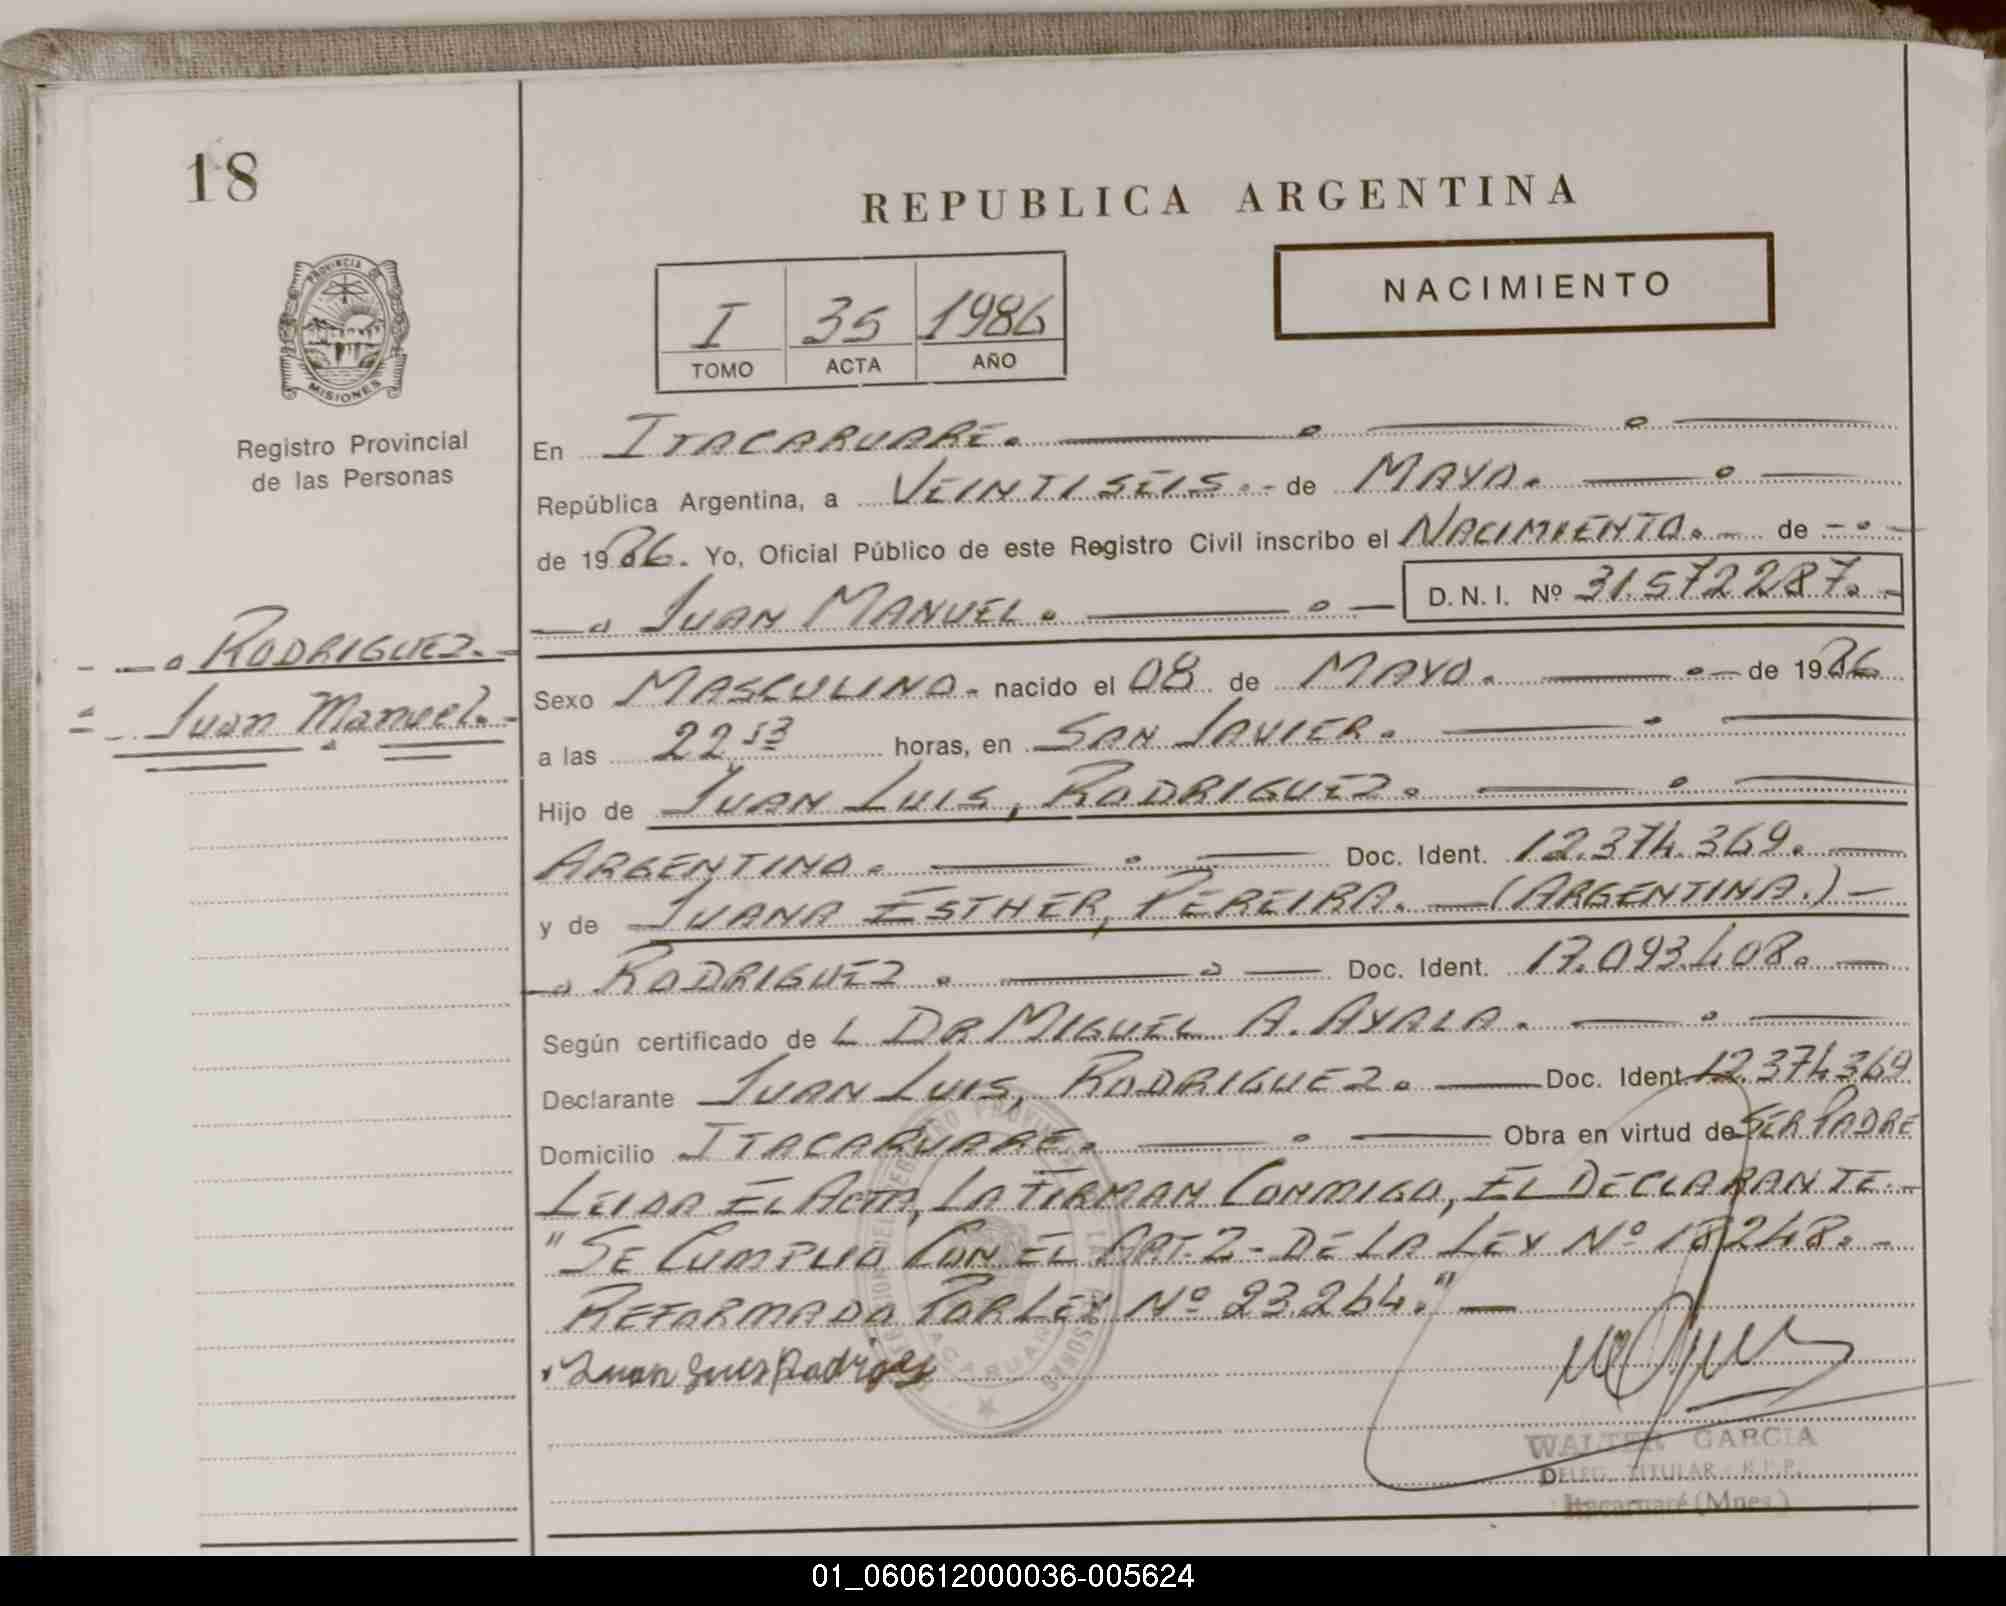 18
PROVINCIA DE
MISIONES
Registro Provincial
de las Personas
RODRIGUEZ.-
Juan Manuel.-
REPUBLICA ARGENTINA
I 35 1986
TOMO ACTA AÑO
NACIMIENTO
En ITACARUARE.
República Argentina, a VEINTISEIS.- de MAYO.
de 1986. Yo, Oficial Público de este Registro Civil inscribo el NACIMIENTO.- de
JUAN MANUEL. D.N.I. Nº 31.572287.-
Sexo MASCULINO. nacido el 08 de MAYO. de 1986
a las 22 53 horas, en SAN JAVIER.
Hijo de JUAN LUIS, RODRIGUEZ.
ARGENTINO. Doc. Ident. 12.374.369.
y de JUANA ESTHER, PEREIRA. (ARGENTINA.)
RODRIGUEZ. Doc. Ident. 17.093.408.
Según certificado de L DR MIGUEL A. AYALA.
Declarante JUAN LUIS, RODRIGUEZ. Doc. Ident. 12.374.369
Domicilio ITACARUARE. Obra en virtud de SER PADRE
LEIDA EL ACTA, LA FIRMAN CONMIGO, EL DECLARANTE.-
"SE CUMPLIO CON EL ART. 2- DE LA LEY Nº 18248.-
REFORMADO POR LEY Nº 23.264."
Juan Luis Rodrigez
WALTER GARCIA
DELEG. TITULAR R.P.P.
Itacaruaré (Mnes.)
01_060612000036-005624